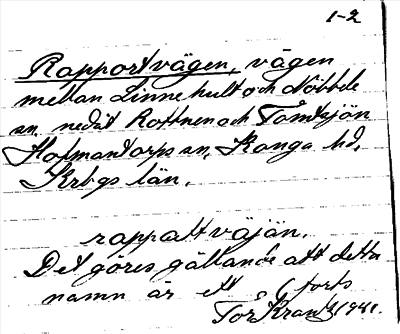 1-2
Rapportvägen, vägen
mellan Linnehult och Nöbbele
sn, nedåt Rottnen och Tomtsjön
Hofmantorps sn, Konga hd,
Krbgs län.
rappattväjän.
Det göres gällande att detta
namn är ett (forts
Tor Krantz 1941.